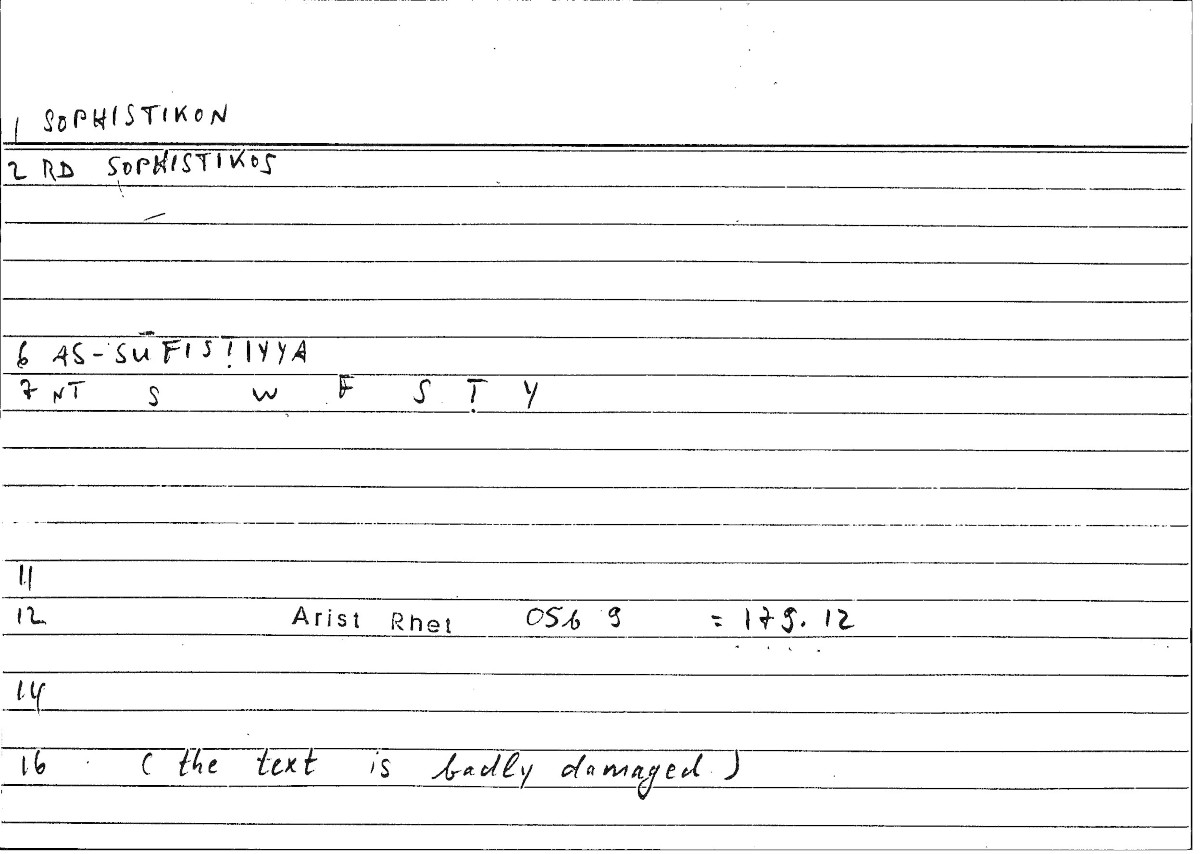 1 SOPHISTIKON
2 RD SOPHISTIKOS
6 AS-SŪFISṬIYYA
7 NT S W F S Ṭ Y
11
12 Arist Rhet 056 9 = 179.12
14
16 (the text is badly damaged)